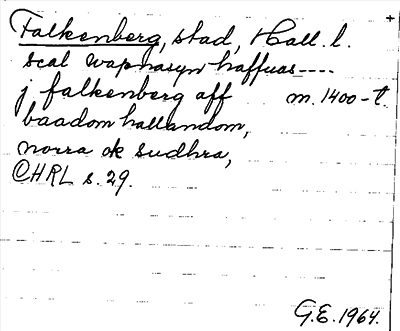 Falkenberg, stad, Hall. l.
scal wapnasyn haffuas ----
j falkenberg aff m. 1400-t.
baadom hallandom,
norra ok sudhra,
CHRL s. 29.
G.E. 1964.